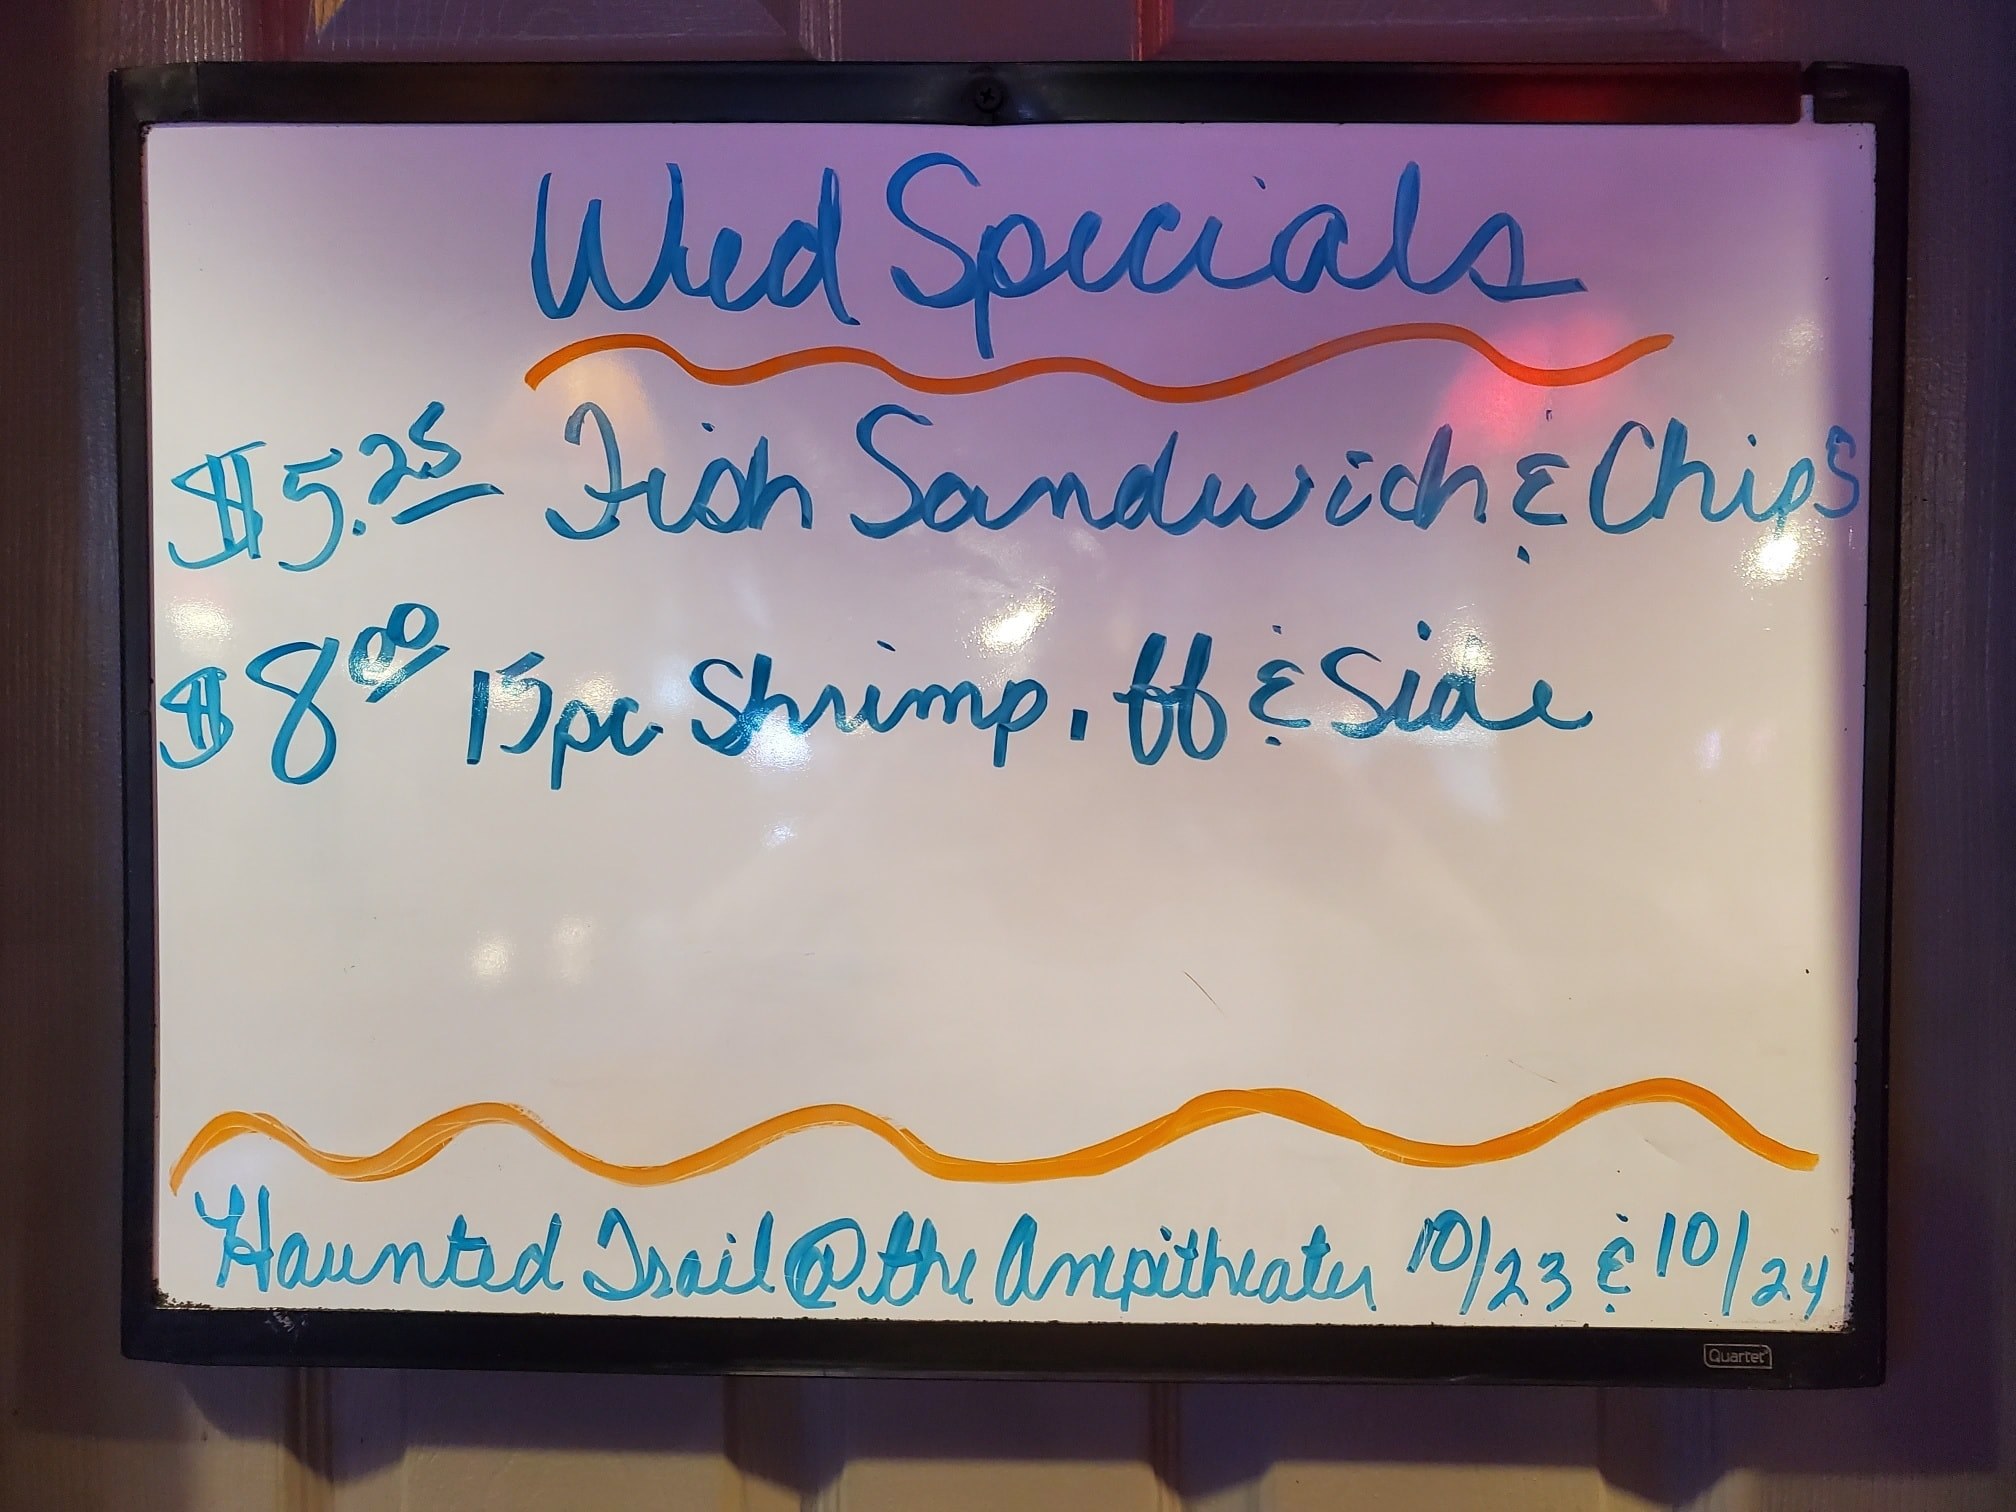 Wed Specials
$5.25 Fish Sandwich & Chips
$8.00 15pc Shrimp, ff & Side
Haunted Trail @ the Ampitheater 10/23 & 10/24
Quartet